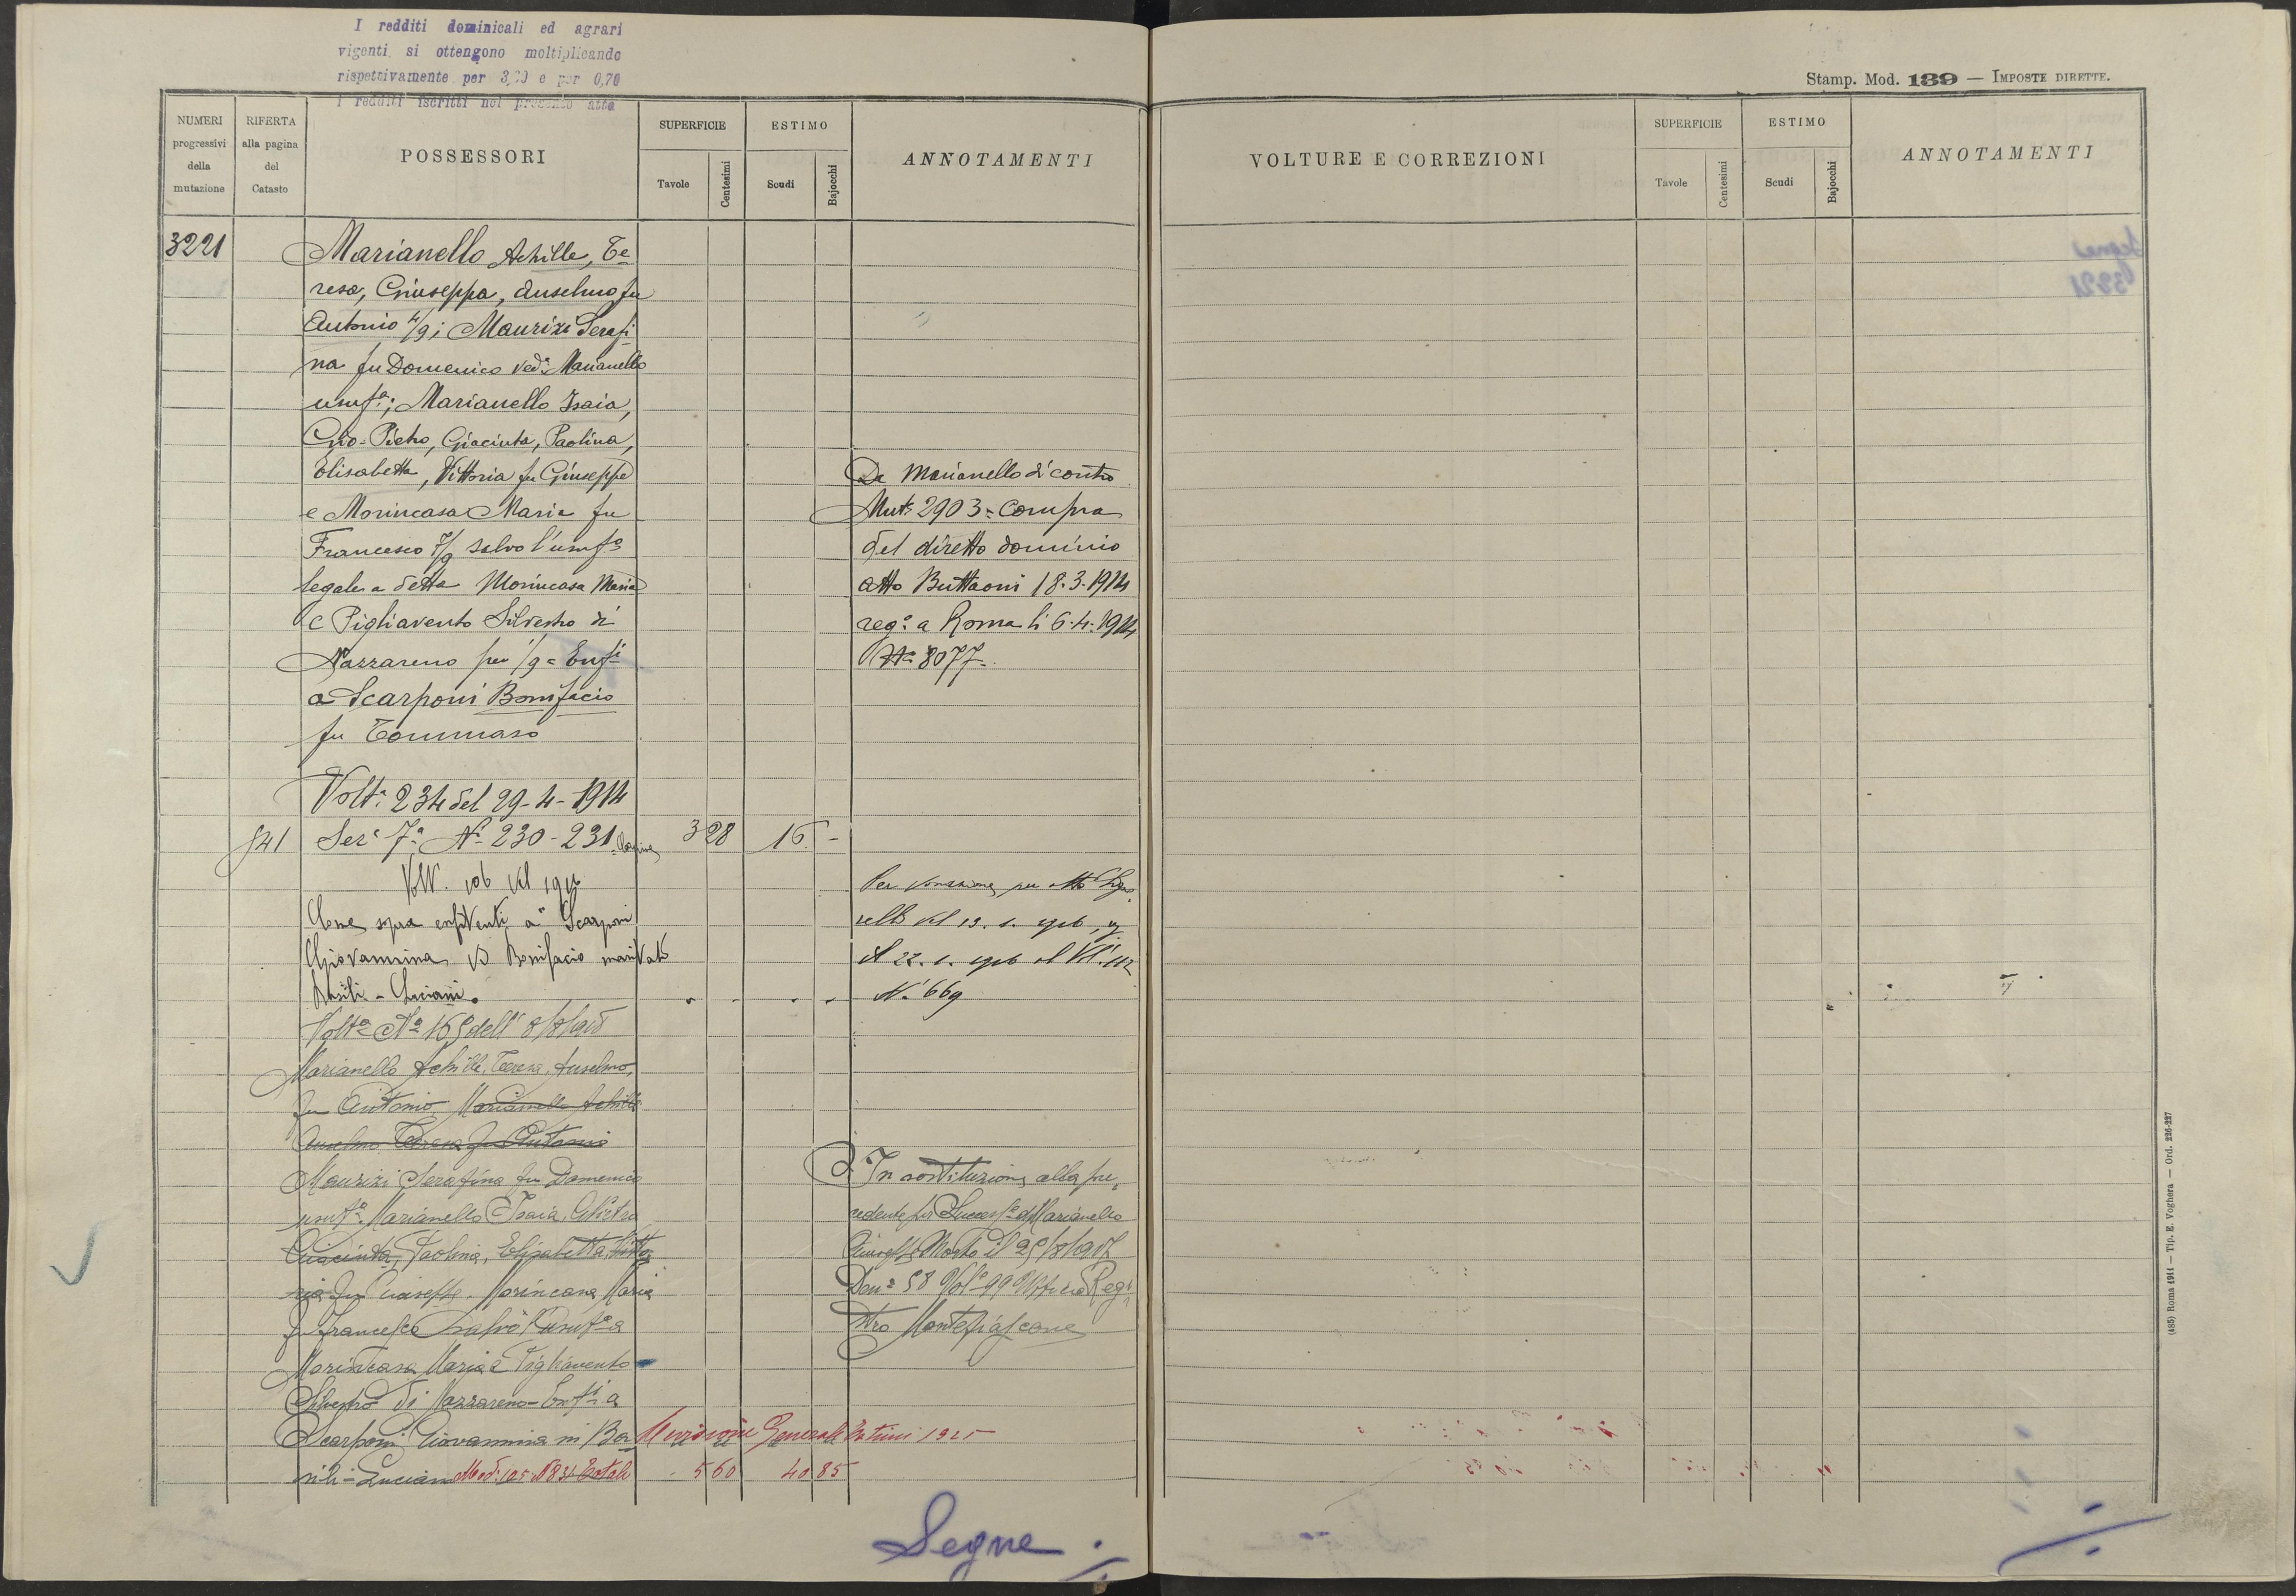 I redditi dominicali ed agrari
vigenti si ottengono moltiplicando
rispettivamente per 3,20 e per 0,70
i redditi iscritti nel presente atto
Stamp. Mod. 139 — IMPOSTE DIRETTE.
NUMERI progressivi della mutazione
RIFERTA alla pagina del Catasto
POSSESSORI
SUPERFICIE
Tavole
Centesimi
ESTIMO
Scudi
Bajocchi
ANNOTAMENTI
VOLTURE E CORREZIONI
SUPERFICIE
Tavole
Centesimi
ESTIMO
Scudi
Bajocchi
ANNOTAMENTI
3221 Marianello Achille, Te
resa, Giuseppa, Anselmo fu
Antonio 4/9; Maurizi Serafi
na fu Domenico ved.a Marianello
usuf.a; Marianello Isaia,
Gio-Pietro, Giacinta, Paolina,
Elisabetta, Vittoria fu Giuseppe
e Morincasa Maria fu
Francesco 4/9 salvo l'usuf.o
legale a detta Morincasa Maria
e Pigliavento Silvestro di
Nazzareno per 1/9 = Enf.i
a Scarponi Bonifacio
fu Tommaso
Da Marianello di contro
Mut. 2903 = Compra
del diretto dominio
atto Buttaoni 18-3-1914
reg.o a Roma li 6-4-1914
N.o 8077
Volt.a 234 del 29-4-1914
541 Sez. 7a N. 230-231 328 15 -
Volt. 106 del 1916
Come sopra enfiteuti a Scarponi
Giovannina di Bonifacio maritata
Basili - Luciani.
Per donazione per atto
del 13. 1. 1916,
il 22. 1. 1916 al Vol. 112
N. 669
Volt.a N.o 165 dell' 8/8/918
Marianello Achille, Teresa, Anselmo,
fu Antonio, Marianello Achille
Anselmo Teresa fu Antonio
Maurizi Serafina fu Domenico
usuf.a Marianello Isaia, GioPietro
Giacinta, Paolina, Elisabetta, Vitto
ria fu Giuseppe. Morincasa Maria
fu Francesco salvo l'usuf.o a
Morincasa Maria e Pigliavento
Silvestro di Nazzareno - Enf.i a
Scarponi Giovannina in Ba
sili - Luciani
In sostituzione alla pre
cedente per Success.e di Marianello
Giuseppe Morto il
Den.a 58 Vol.e 99 Ufficio Regi
stro Montefiascone
Revisione Generale Estimi 1925
Mod. 105 N 831 Totale 5 60 40 85
Segue
(485) Roma 1911 — Tip. E. Voghera — Ord. 226-227